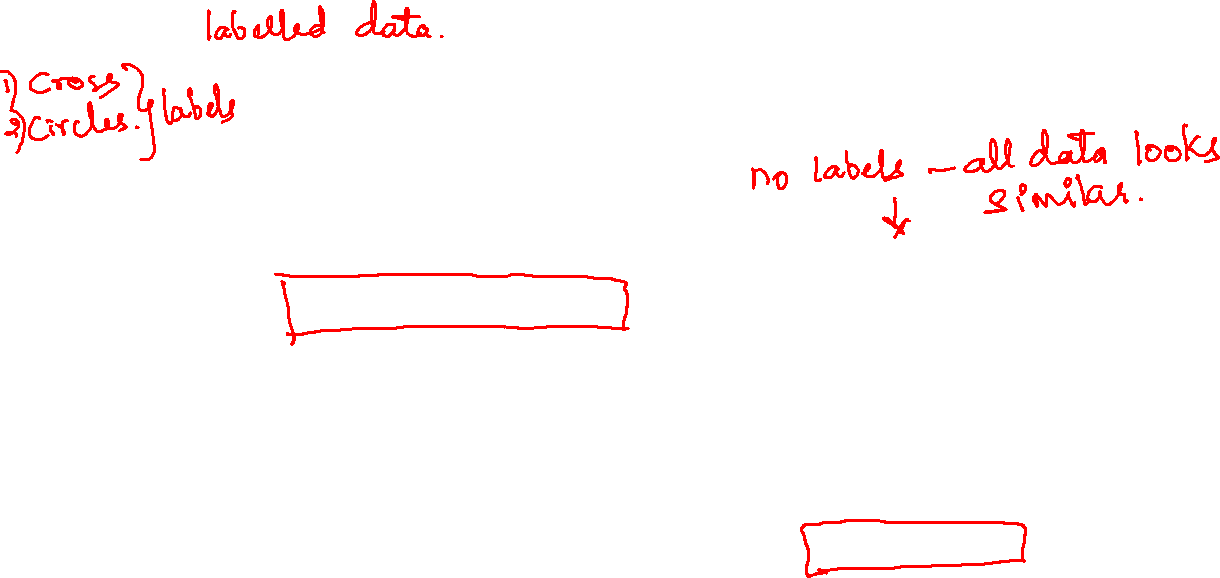 labelled data.
1) Cross
2) Circles. } labels
no labels – all data looks
similar.